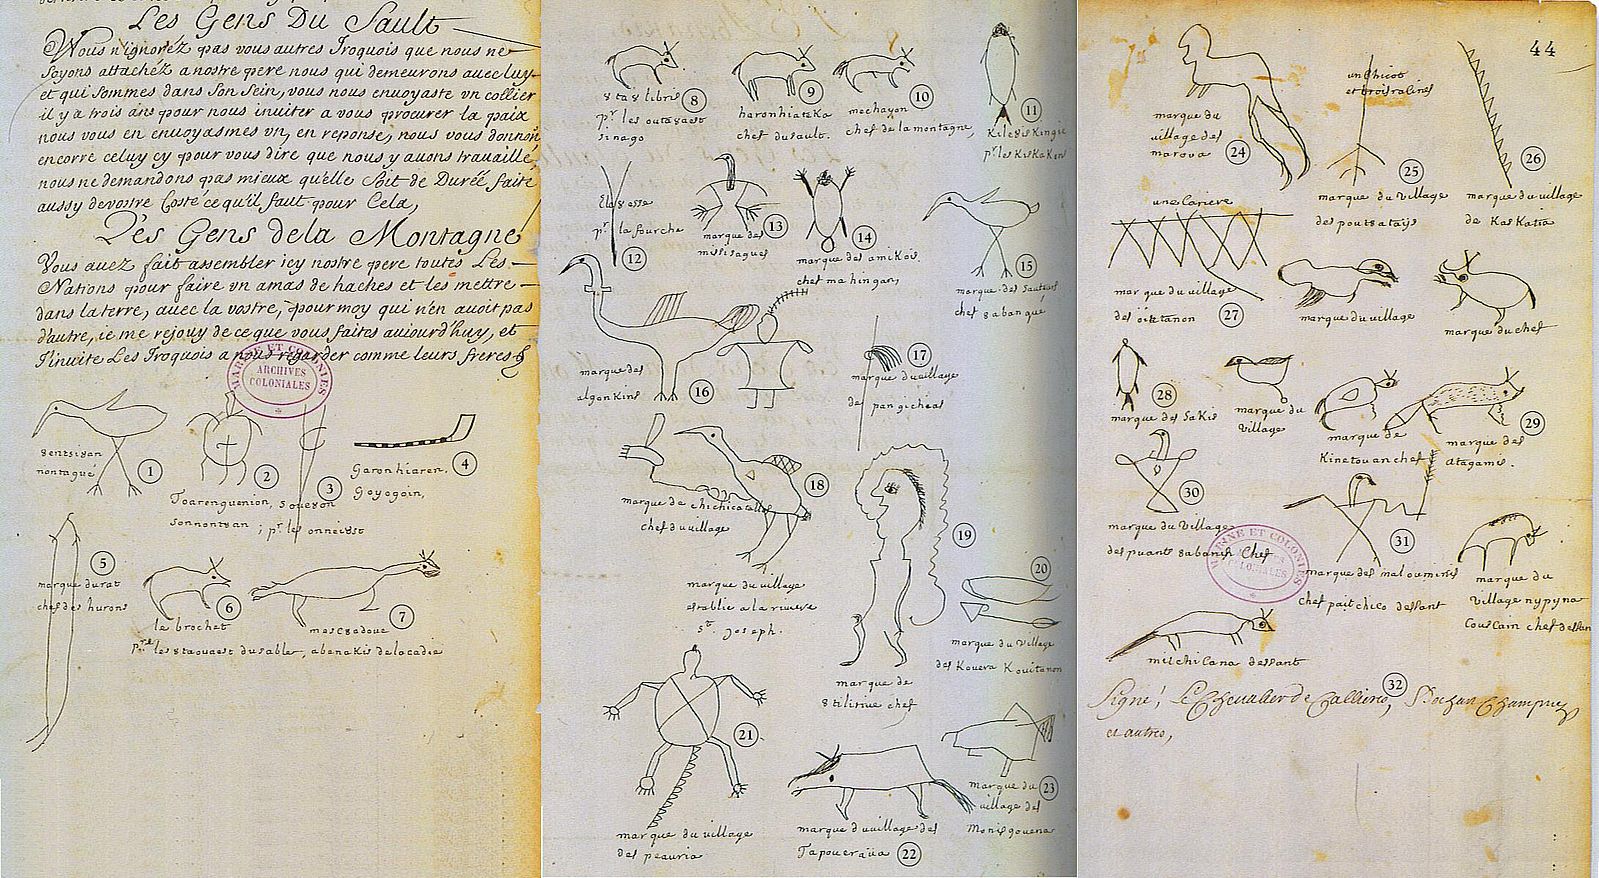 Les Gens Du Sault
Vous n'ignorez pas vous autres Iroquois que nous ne
soyons attachéz a nostre pere nous qui demeurons avec luy
et qui sommes dans son sein, vous nous envoyaste vn collier
il y a trois ans pour nous inviter a vous procurer la paix
nous vous en envoyasmes vn, en reponse, nous vous donnon
encorre celuy cy pour vous dire que nous y avons travaillé,
nous ne demandons pas mieux qu'elle soit de Durée faite
aussy de vostre Costé ce qu'il faut pour Cela,
Les Gens de la Montagne
Vous avez fait assembler icy nostre pere toutes Les
Nations pour faire vn amas de haches et les mettre
dans la terre, avec la vostre, pour moy qui n'en avoit pas
d'autre, ie me rejouy de ce que vous faites aujourd'huy, et
J'invite Les Iroquois a nous regarder comme leurs freres
MARINE ET COLONIES
ARCHIVES
COLONIALES
1
2
3
garonhiaren.
goyogoin,
4
Toarenguenion,
sonnontuan ; pr les onneiust
5
marque du rat
chef des hurons
6
le brochet
7
abenakis de lacadie
8
pr les outauast
sinago
9
haronhiateka
chef du sault.
10
mechayon
chef de la montagne,
11
Kileuiskingie
pr les Kiskakon
12
pr la fourche
13
marque des
missisagues
14
marque des amikois
chef mahingan,
15
marque des sauteurs
chef
16
marque des
algonkins
17
marque du village
de pangicheas
18
marque de chichicatalo
chef du village
marque du village
establie a la riviere
st. joseph.
19
marque de
chef
20
marque du village
des Kouera Kouitanon
21
marque du village
des peauria
marque du village des
Tapoueroüa 22
23
marque du
village des
Monisgouena
44
marque du
village des
marova 24
un chicot
et trois racines
25
marque du village
des poutsatays
26
marque du village
de Kaskatia
une Cariere
marque du village
des 27
marque du village
marque du chef
28
marque des sakis
marque du
village
marque de
Kinetouan chef
29
marque des
atagamis.
30
marque du village
des puants Chef
MARINE ET COLONIES
COLONIALES
31
marque des maloumines
chef paitchico dessant
marque du
village nypyna
Couscain chef
milchicana dessant
32
Signé, Le Chevalier de Callieres, Bochart Champigny
et autres,